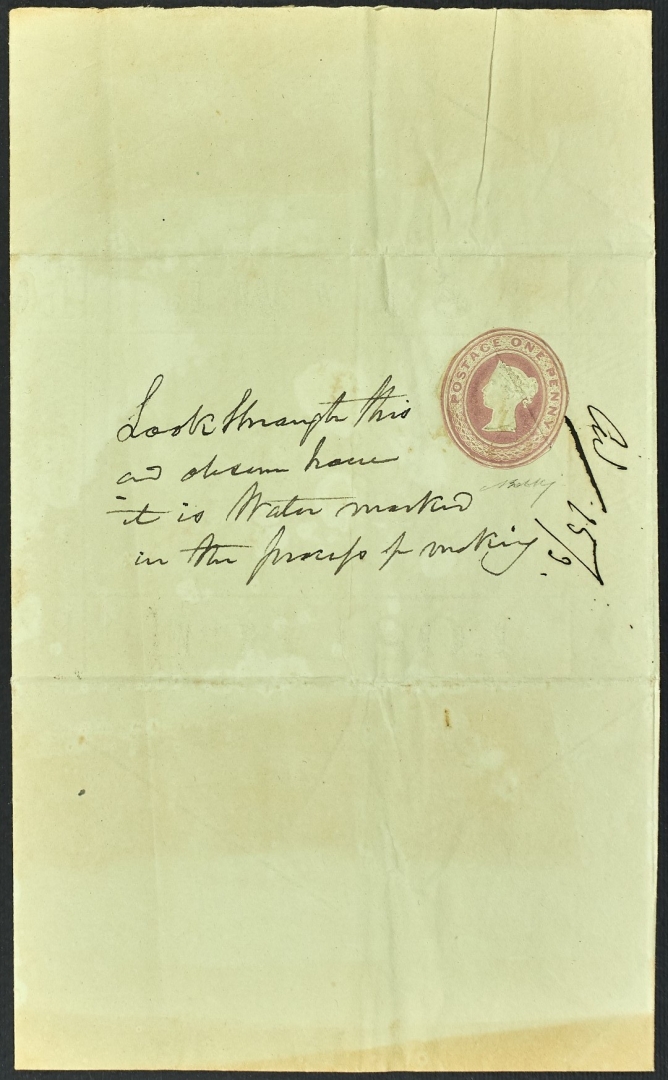 Look through this
and observe how
it is Water marked
in the process of making
POSTAGE ONE PENNY